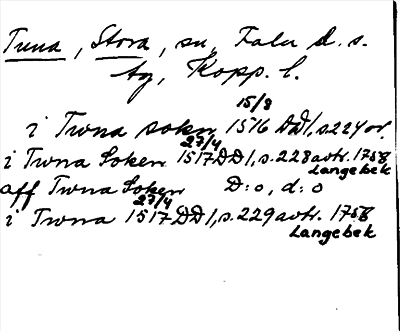 Tuna, Stora, sn, Falu d. s.
tg, Kopp. l.
15/8
i Twna sokn 1516 DD1, s. 224 or.
27/4
i Twna Soken 1517 DD1, s. 228 avtr. 1758
Langebek
aff Twna Soken D:o, d:o
27/4
i Twna 1517 DD1, s. 229 avtr. 1758
Langebek